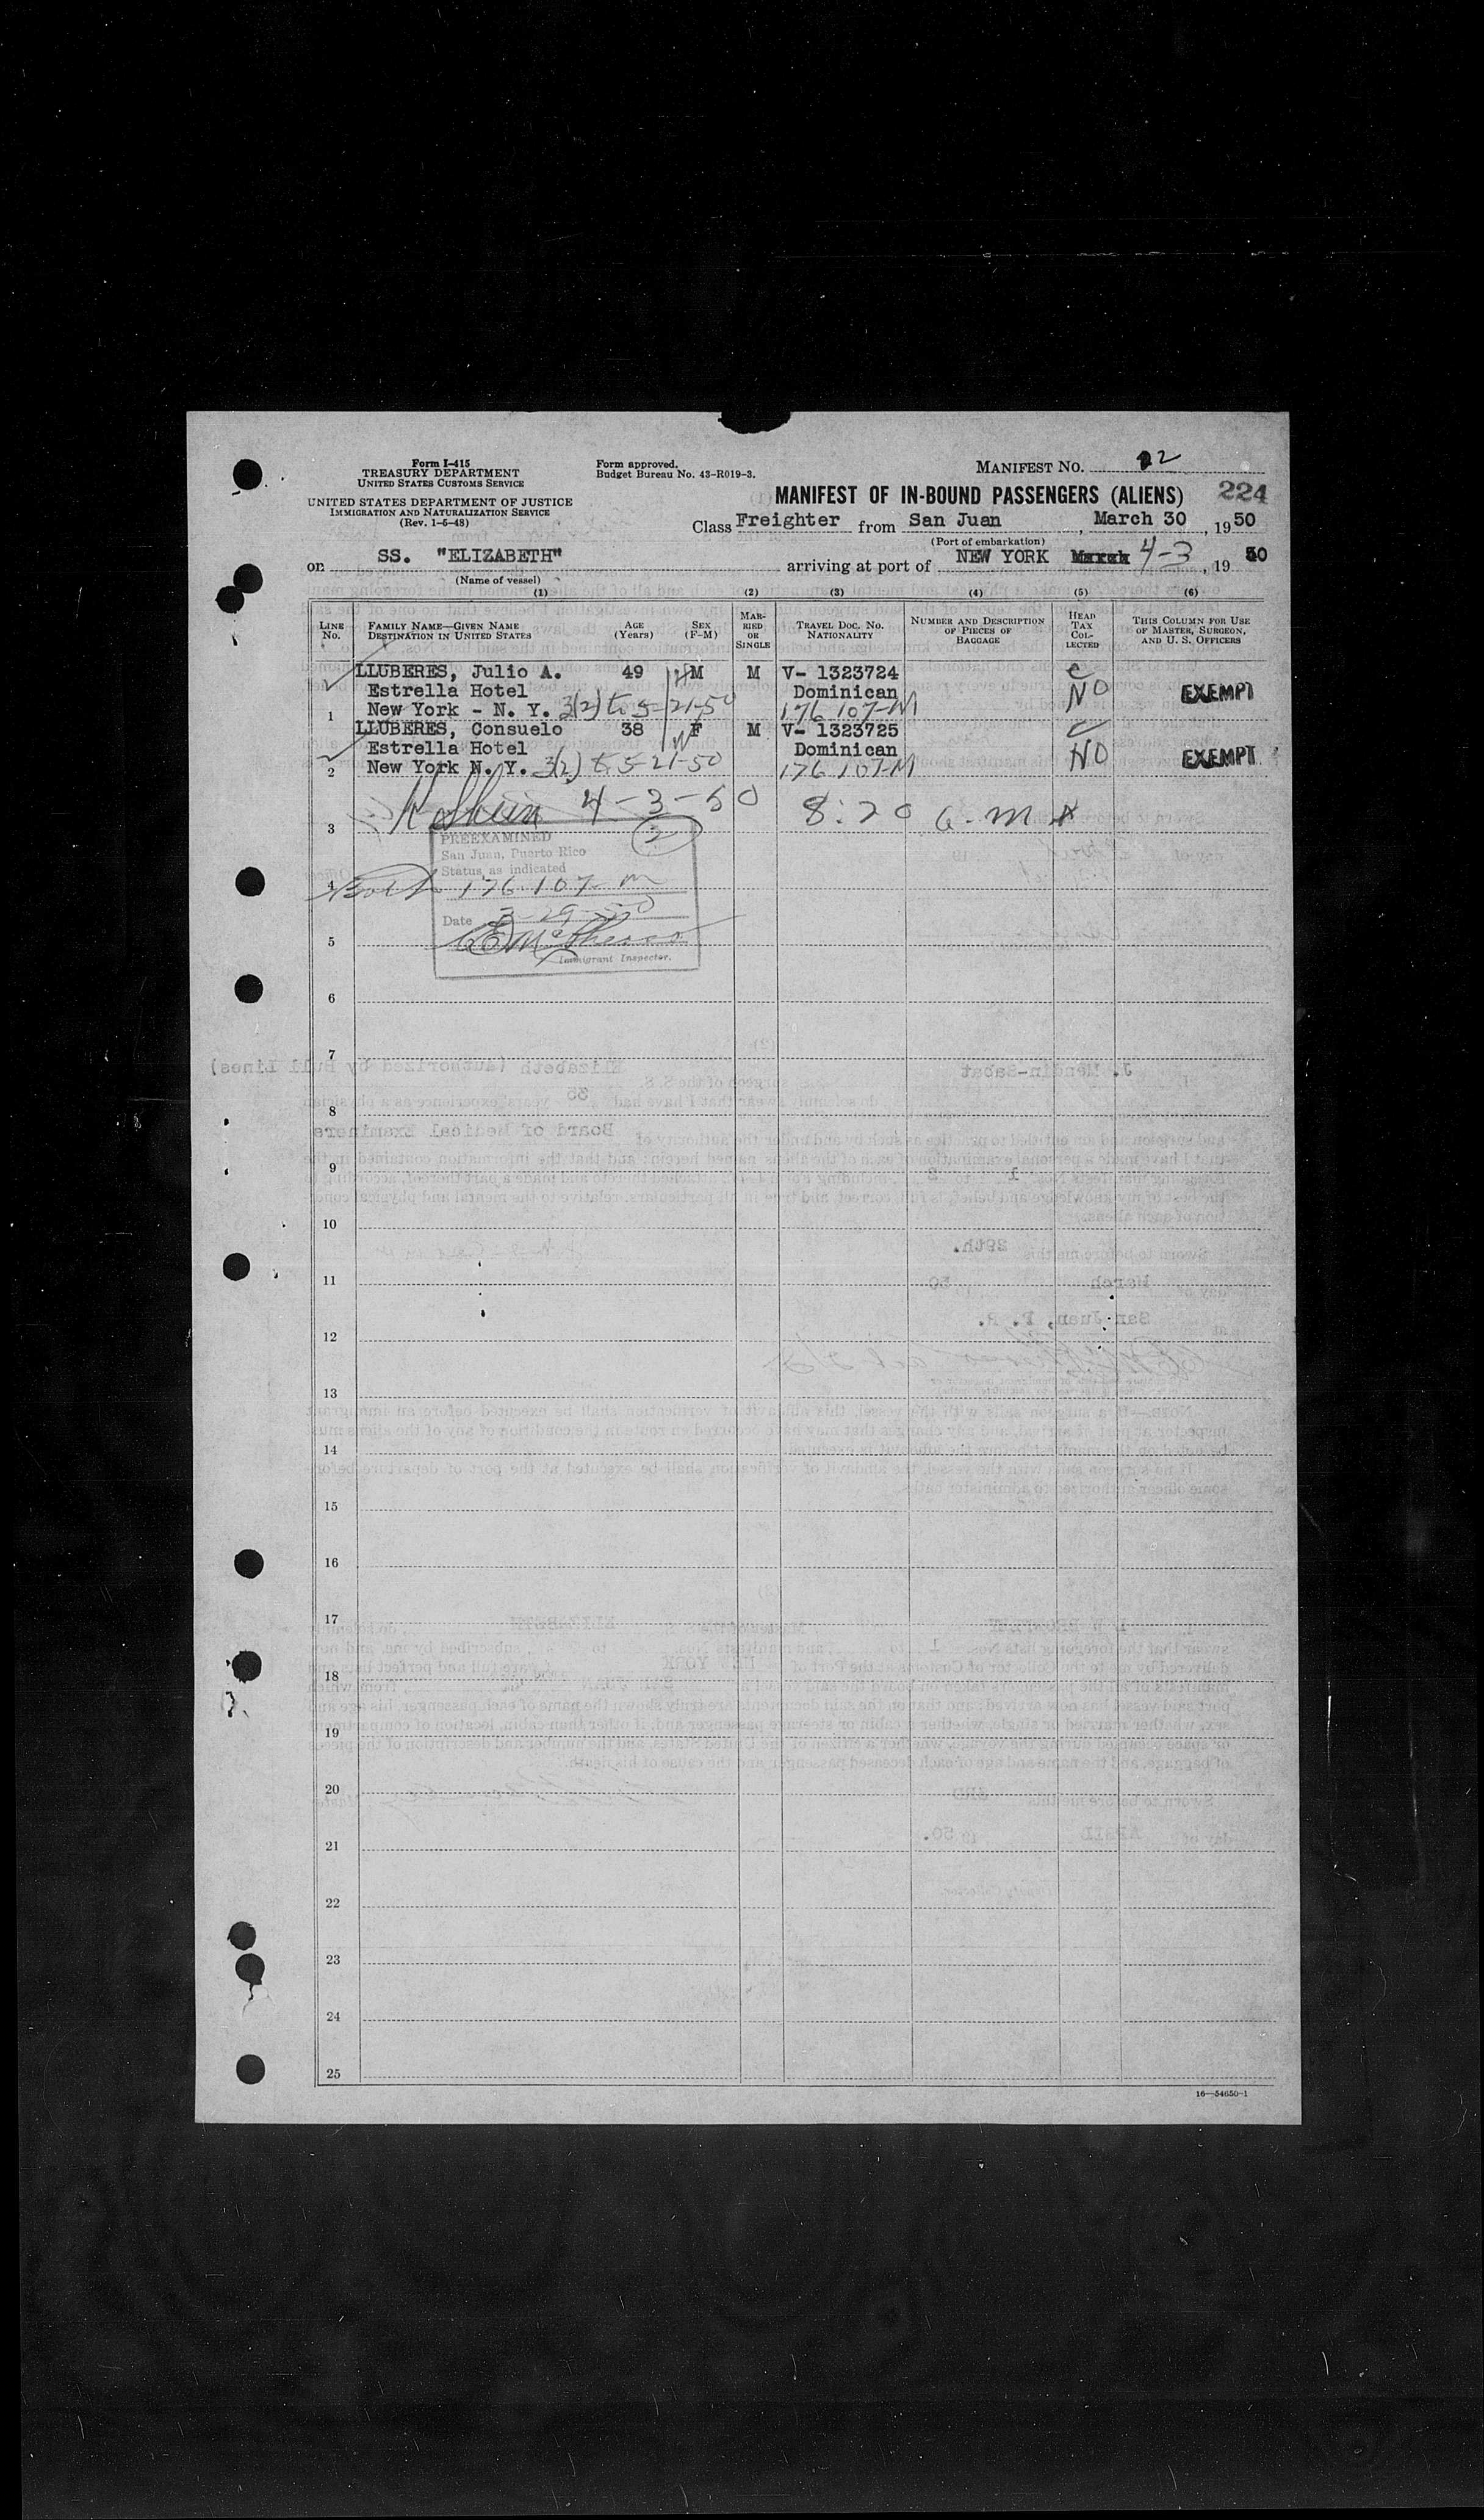 Form I-415
TREASURY DEPARTMENT
UNITED STATES CUSTOMS SERVICE
UNITED STATES DEPARTMENT OF JUSTICE
IMMIGRATION AND NATURALIZATION SERVICE
(Rev. 1-6-48)
Form approved.
Budget Bureau No. 43-R019-3.
MANIFEST NO. 22
MANIFEST OF IN-BOUND PASSENGERS (ALIENS) 224
Class Freighter from San Juan, March 30, 1950
(Port of embarkation)
on SS. "ELIZABETH" arriving at port of NEW YORK March 4-3, 1950
(Name of vessel)
(1) (2) (3) (4) (5) (6)
LINE NO. FAMILY NAME—GIVEN NAME DESTINATION IN UNITED STATES AGE (Years) SEX (F-M) MARRIED OR SINGLE TRAVEL DOC. NO. NATIONALITY NUMBER AND DESCRIPTION OF PIECES OF BAGGAGE HEAD TAX COLLECTED THIS COLUMN FOR USE OF MASTER, SURGEON, AND U. S. OFFICERS
LLUBERES, Julio A. 49 M M V- 1323724
Estrella Hotel Dominican NO EXEMPT
1 New York - N. Y. 3(2) to 5-21-50 176.107-M
LLUBERES, Consuelo 38 W F M V- 1323725
Estrella Hotel Dominican NO EXEMPT
2 New York N. Y. 3(2) to 5-21-50 176.107-M
4-3-50 8:20 a.m
3
PREEXAMINED 2
San Juan, Puerto Rico
Status as indicated
4 Both 176.107-m
Date 3-29-50
5
Immigrant Inspector.
6
7
8
9
10
11
12
13
14
15
16
17
18
19
20
21
22
23
24
25
16—54650-1